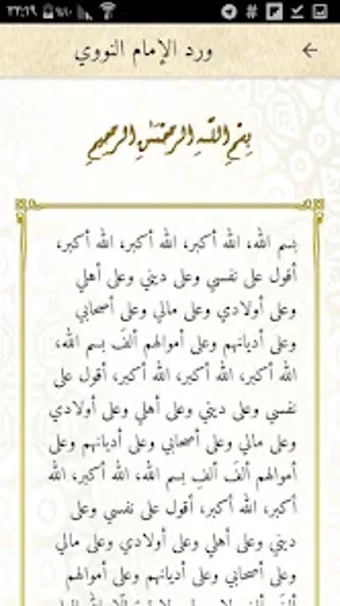 ٢٣:١٩
ورد الإمام النووي
بِسْمِ اللَّهِ الرَّحْمَٰنِ الرَّحِيمِ
بسم الله، الله أكبر، الله أكبر، الله أكبر،
أقول على نفسي وعلى ديني وعلى أهلي
وعلى أولادي وعلى مالي وعلى أصحابي
وعلى أديانهم وعلى أموالهم ألفَ بسم الله،
الله أكبر، الله أكبر، الله أكبر، أقول على
نفسي وعلى ديني وعلى أهلي وعلى أولادي
وعلى مالي وعلى أصحابي وعلى أديانهم وعلى
أموالهم ألفَ ألفِ بسم الله، الله أكبر، الله
أكبر، الله أكبر، أقول على نفسي وعلى
ديني وعلى أهلي وعلى أولادي وعلى مالي
وعلى أصحابي وعلى أديانهم وعلى أموالهم